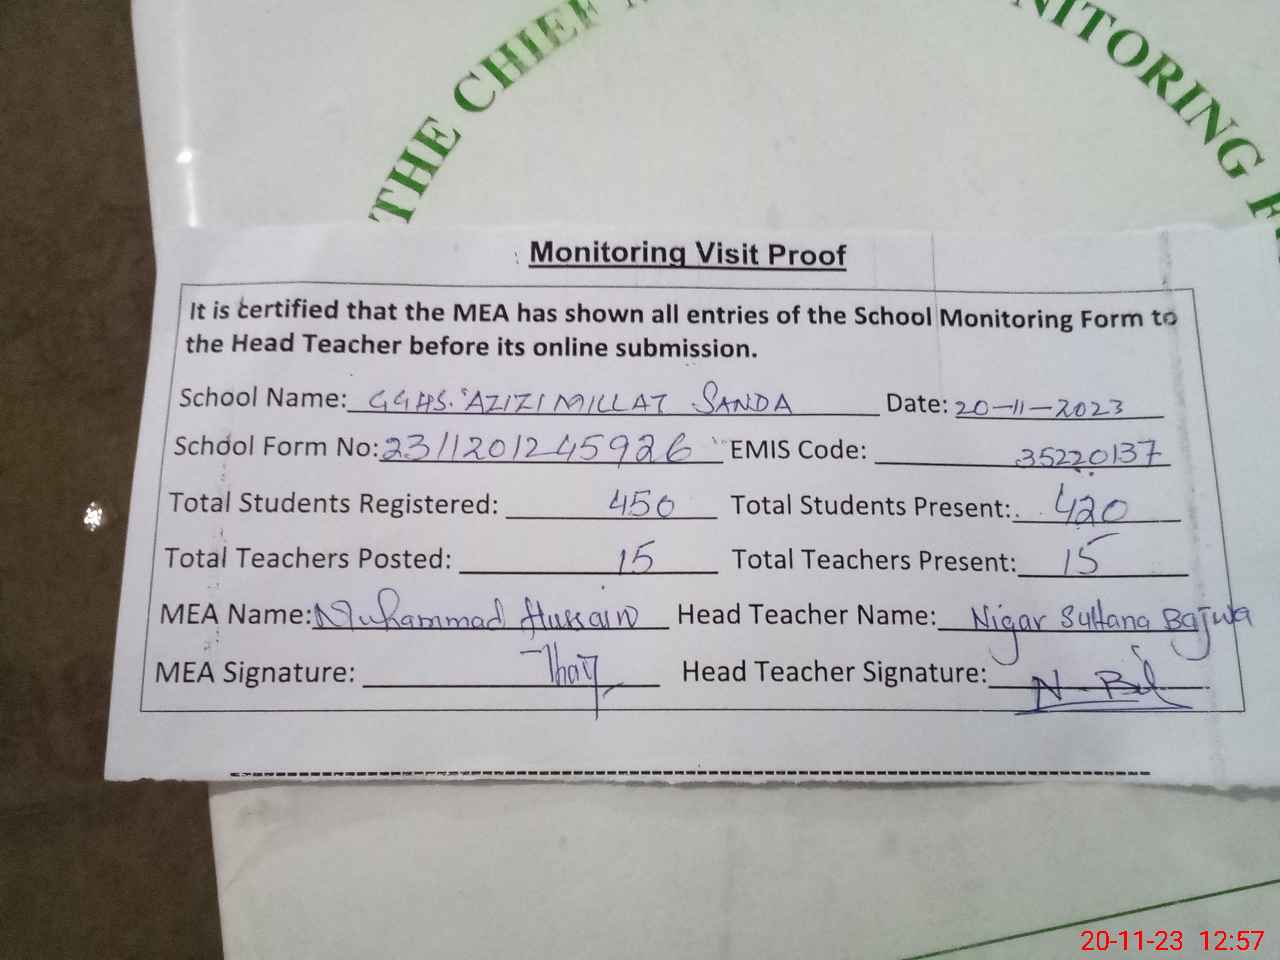 THE CHIEF
NITORING F
Monitoring Visit Proof
It is certified that the MEA has shown all entries of the School Monitoring Form to
the Head Teacher before its online submission.
School Name: GGHS. AZIZI MILLAT SANDA Date: 20-11-2023
School Form No: 231120124 5926 EMIS Code: 35220137
Total Students Registered: 450 Total Students Present: 420
Total Teachers Posted: 15 Total Teachers Present: 15
MEA Name: Muhammad Hussain Head Teacher Name: Nigar Sultana Bajwa
MEA Signature: Head Teacher Signature:
20-11-23 12:57